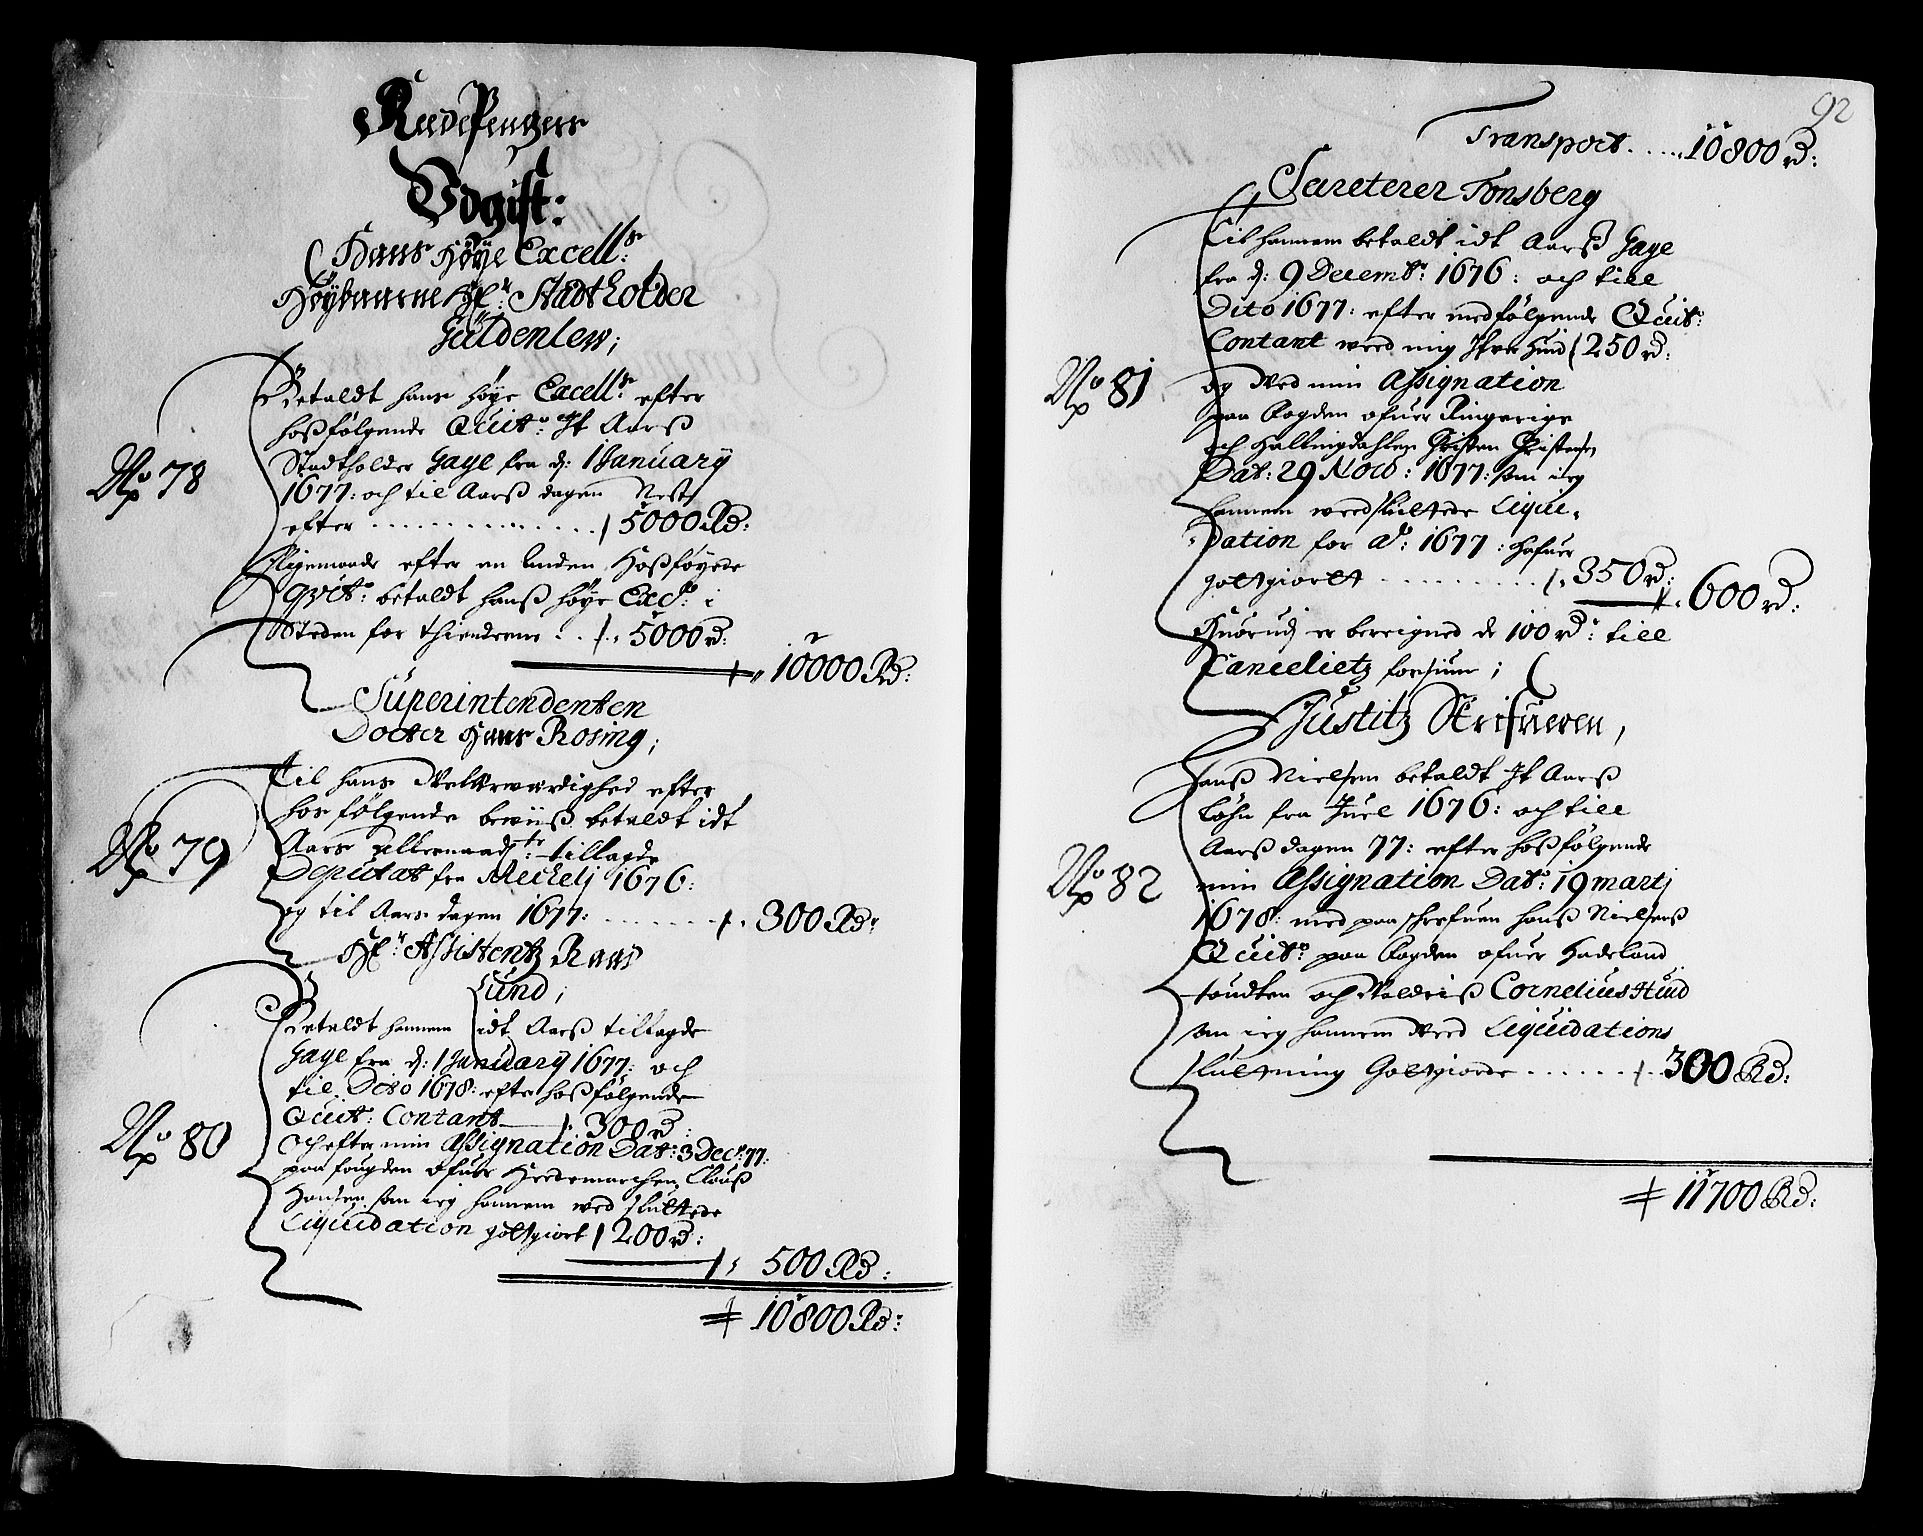 Rede Penger
Vdgift:
Hans Høye Excell:
Høybaarne Hr: Stadtholder
Güldenlew;
Betaldt hans høye Excell: efter
hoßfølgende Quit: It Aarß
No 78
Stadtholder Gage fra d: 1 January
1677: och til Aarß dagen Nest
efter ............ 5000 Rd:
Ligemaade efter en Anden Hoßføyede
Qvit: betaldt hanß høye Exc: i
Steden for thienderne .. 5000 rd:
10000 Rd:
Superintendenten
Docter Hans Rosing;
Til hans Velærwærdighed efter
hos følgende beviiß betaldt idt
No 79
Aars allernaadste: tillagde
Deputat fra Michelj 1676:
og til Aars dagen 1677: ....... 300 Rd:
Hr: Assistentz Raad
Lund;
Betaldt hannem idt Aarß tillagde
Gage fra d: 1 January 1677: och
til Dito 1678: efter hoßfølgende
Quit: Contant 300 rd:
No 80
Och efter min Assignation Dat: 3 Dec: 77:
paa fougden ofuer Hedemarchen Clauß
Hansen som ieg hannem wed sluttede
Liquidation gotgiort 200 rd:
500 Rd:
10800 Rd:
92
Transport ..... 10800 rd:
Secreterer Tonsberg
Til hannem betaldt idt Aarß Gage
fra d: 9 Decemb: 1676: och till
Dito 1677: efter medfølgende Quit:
Contant weed mig Iver Hund 250 rd:
No 81
og Ved min Assignation
paa Fogden ofuer Ringerige
och Hallingdahlen Christen Christensen
Dat: 29 Nov: 1677: som ieg
hannem weed sluttede Liqui-
dation for ao: 1677: hafuer
gotgiort .......... 350 rd:
600 rd:
Huorudj er bereigned de 100 rd: till
Cancelietz fornium;
Justitz Skrifueren,
Hanß Nielsen betaldt It Aarß
Løhn fra Juel 1676: och till
Aarß dagen 77: efter hoßfølgende
No 82
min Assignation Dat: 19 martj
1678: med paaschrefuen Hanß Nielsenß
Quit: paa Fogden ofuer Hadeland
toudten och Valdriß Cornelius Hund
som ieg hannem Weed Liquidations
sluttning Gotgiorde ....... 300 Rd:
11700 Rd: